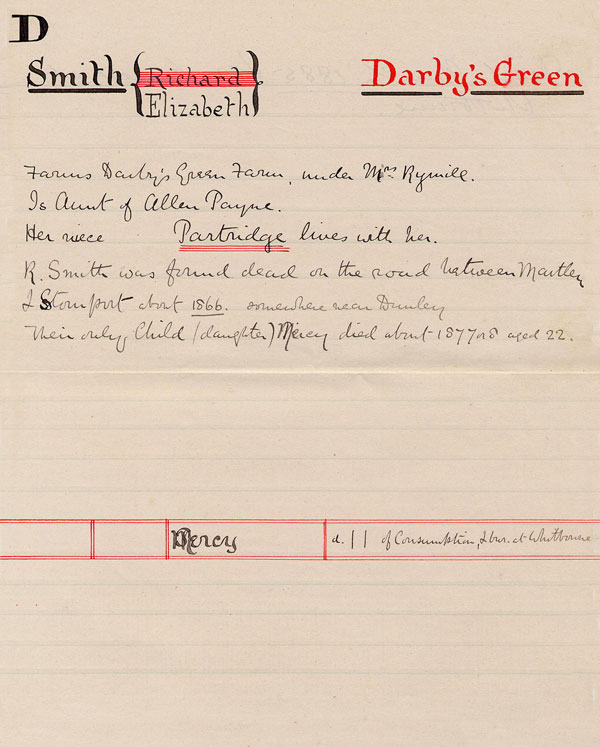 D
Smith { Richard Elizabeth } Darby's Green
Farms Darby's Green Farm, under Mrs Rymill.
Is Aunt of Allen Payne.
Her niece Partridge lives with her.
R. Smith was found dead on the road between Martley
& Stourport about 1866. somewhere near Dunley
Their only Child (daughter) Mercy died about 1877 or 8 aged 22.
Mercy d. | | of Consumption, & bur. at Whitbourne